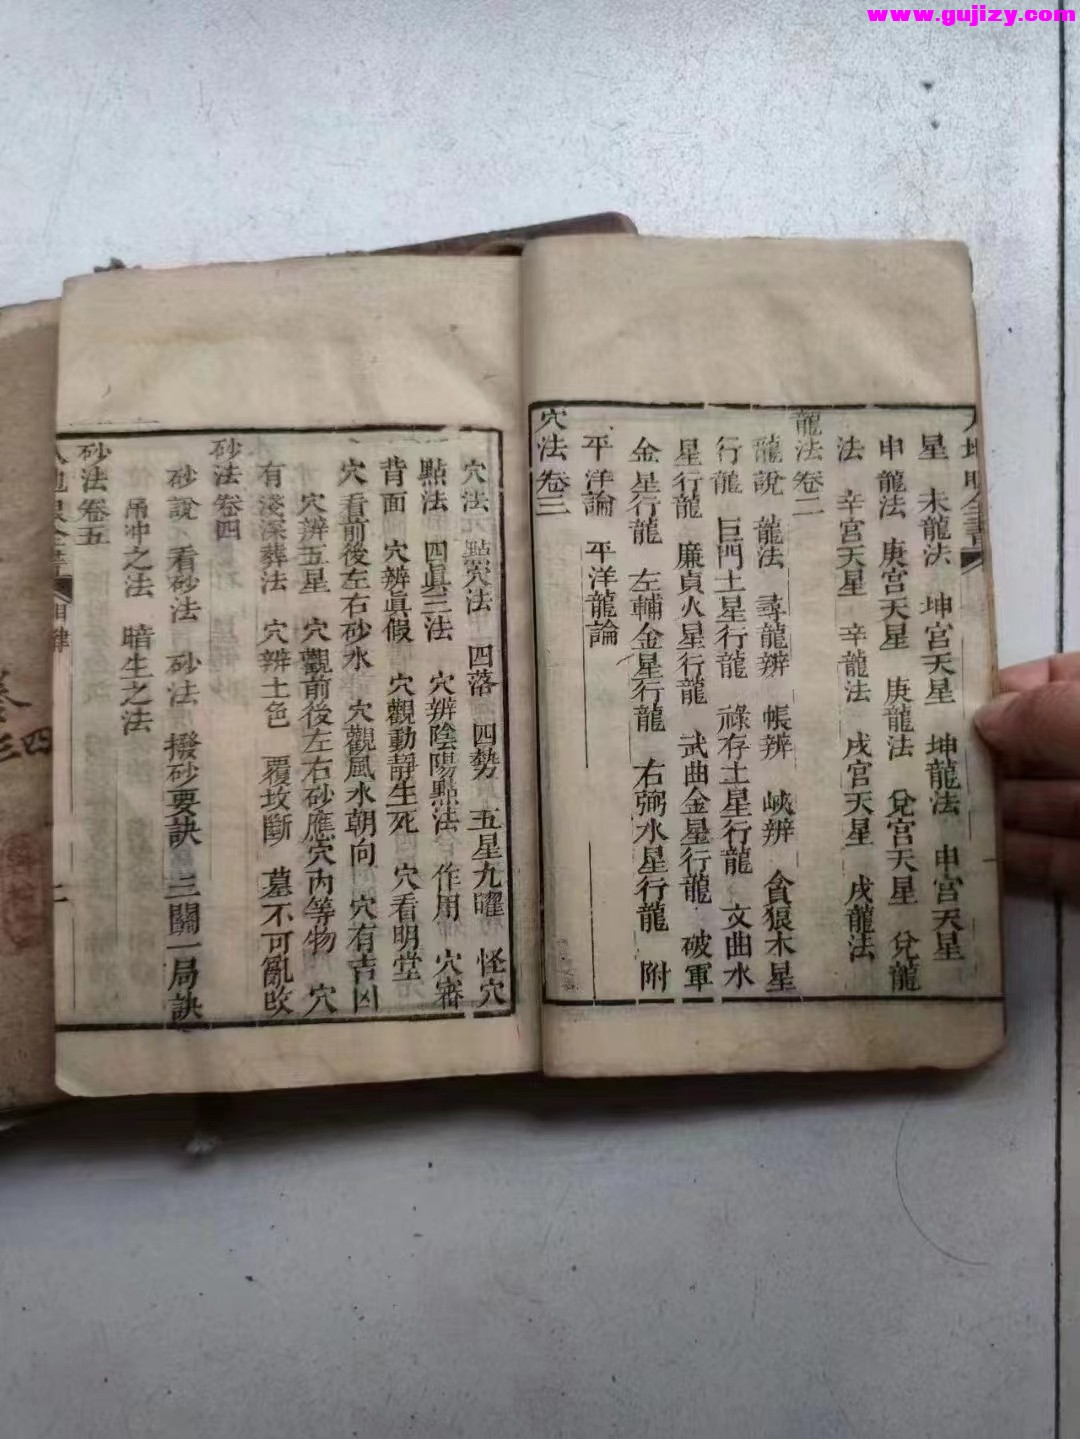 www.gujizy.com
星 未龍法 坤宮天星 坤龍法 申宮天星
申龍法 庚宮天星 庚龍法 兌宮天星 兌龍
法 辛宮天星 辛龍法 戌宮天星 戌龍法
龍法卷二
龍說 龍法 尋龍辨 帳辨 峽辨 貪狼木星
行龍 巨門土星行龍 祿存土星行龍 文曲水
星行龍 廉貞火星行龍 武曲金星行龍 破軍
金星行龍 左輔金星行龍 右弼水星行龍 附
平洋論 平洋龍論
穴法卷三
穴法 點穴法 四落 四勢 五星九曜 怪穴
點法 四眞三法 穴辨陰陽點法 作用 穴審
背面 穴辨眞假 穴觀動靜生死 穴看明堂
穴看前後左右砂水 穴觀風水朝向 穴有吉凶
穴辨五星 穴觀前後左右砂應穴內等物 穴
有淺深葬法 穴辨土色 覆坟斷 墓不可亂改
砂法卷四
砂說 看砂法 砂法 撥砂要訣 三關一局訣
吊冲之法 暗生之法
砂法卷五
四